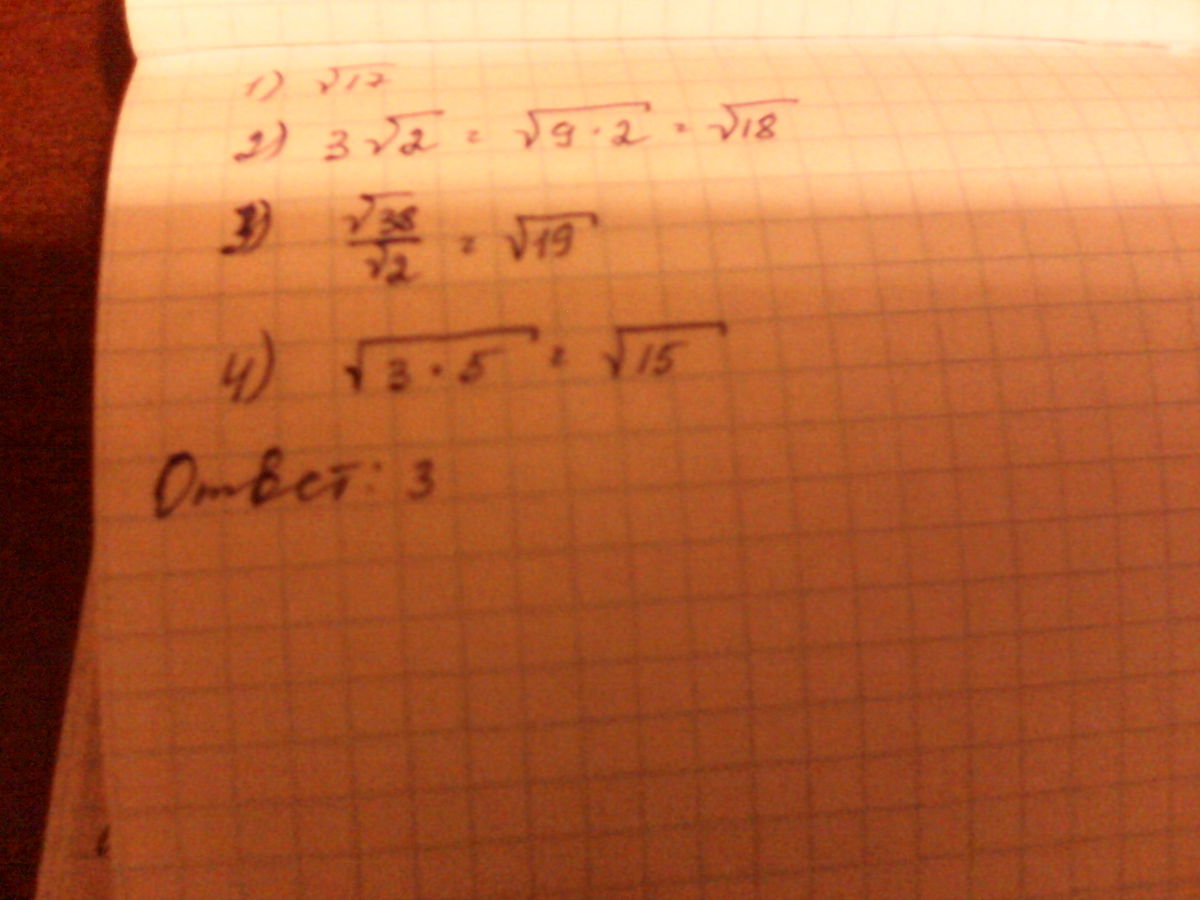 1) √17
2) 3√2 = √9·2 = √18
3) √38/√2 = √19
4) √3·5 = √15
Ответ: 3